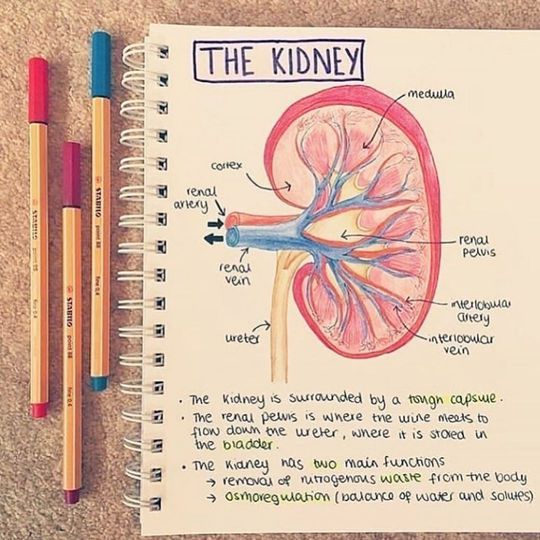 THE KIDNEY
medulla
cortex
renal
artery
renal
vein
renal
pelvis
interlobular
artery
interlobular
vein
ureter
• The kidney is surrounded by a tough capsule.
• The renal pelvis is where the urine meets to
flow down the ureter, where it is stored in
the bladder.
• The kidney has two main functions
→ removal of nitrogenous waste from the body
→ osmoregulation (balance of water and solutes)
STABILO point 88 fine 0.4
STABILO point 88 fine 0.4
STABILO point 88 fine 0.4